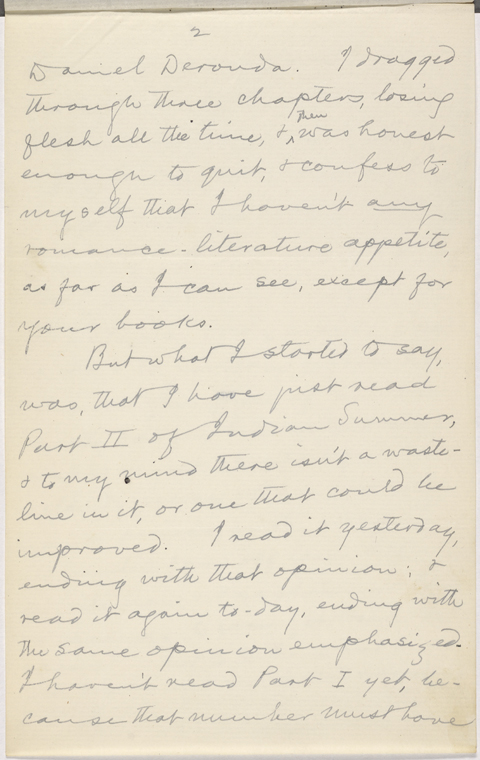 2
Daniel Deronda. I dragged
through three chapters, losing
flesh all the time, & then was honest
enough to quit, & confess to
myself that I haven't any
romance-literature appetite,
as far as I can see, except for
your books.
But what I started to say,
was, that I have just read
Part II of Indian Summer,
& to my mind there isn't a waste-
line in it, or one that could be
improved. I read it yesterday,
ending with that opinion; &
read it again to-day, ending with
the same opinion emphasized.
I haven't read Part I yet, be-
cause that number must have